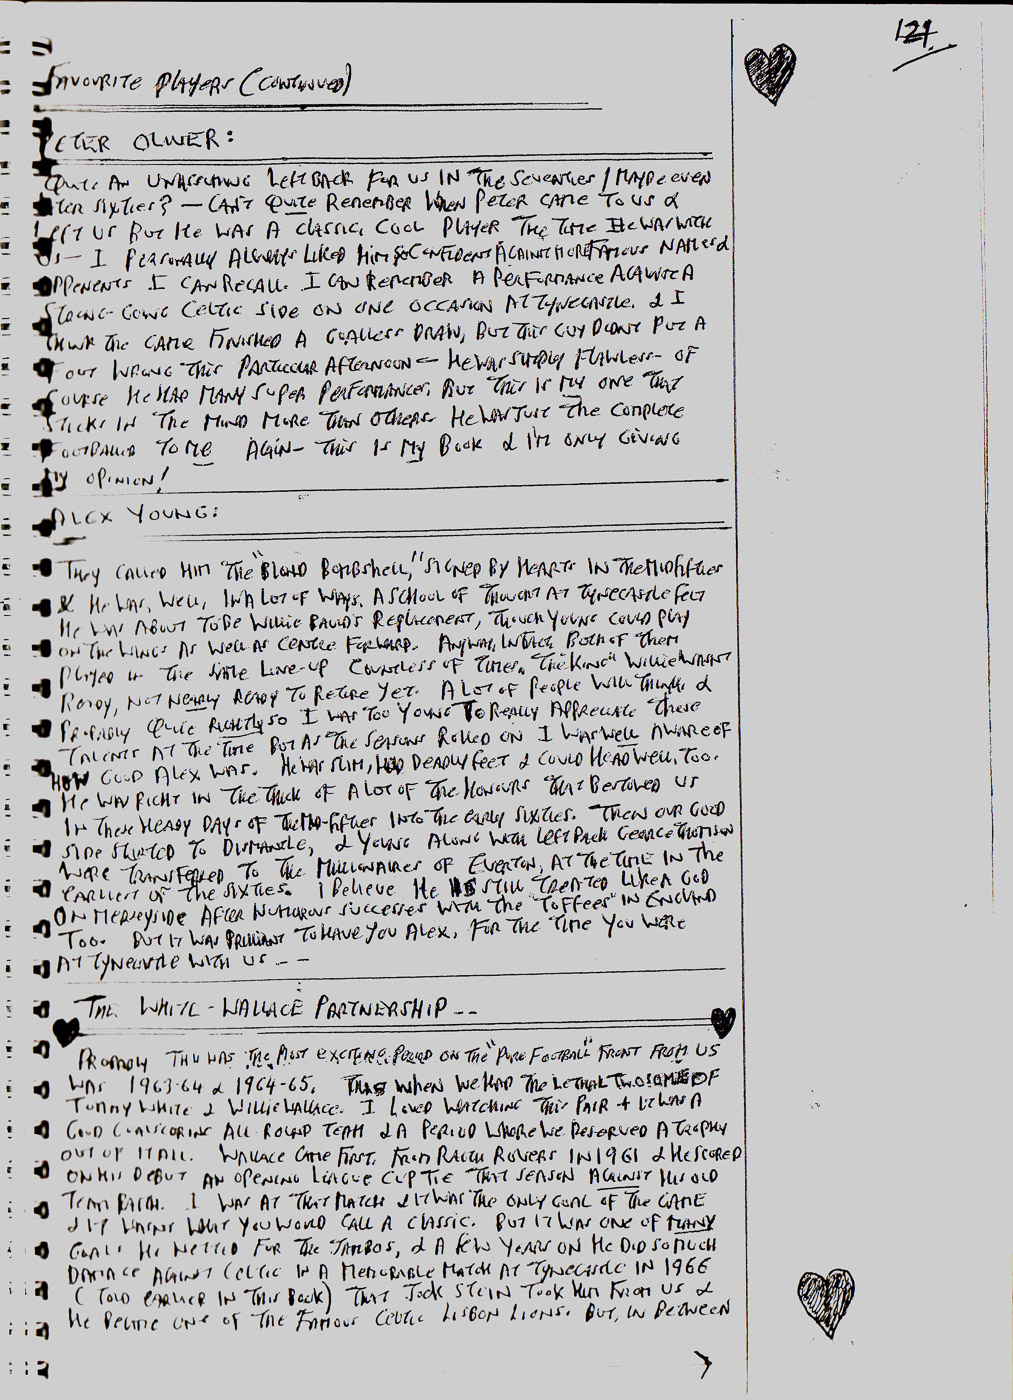 124.
FAVOURITE PLAYERS (CONTINUED)
PETER OLIVER:
QUITE AN UNASSUMING LEFT BACK FOR US IN THE SEVENTIES / MAYBE EVEN
LATER SIXTIES? — CAN'T QUITE REMEMBER WHEN PETER CAME TO US &
LEFT US BUT HE WAS A CLASSIC, COOL PLAYER THE TIME HE WAS WITH
US — I PERSONALLY ALWAYS LIKED HIM SO CONFIDENT AGAINST MORE FAMOUS NAMED
OPPENENTS I CAN RECALL. I CAN REMEMBER A PERFORMANCE AGAINST A
STRONG-GOING CELTIC SIDE ON ONE OCCASION AT TYNECASTLE. & I
THINK THE GAME FINISHED A GOALLESS DRAW, BUT THIS GUY DIDN'T PUT A
FOOT WRONG THIS PARTICULAR AFTERNOON — HE WAS SIMPLY FLAWLESS — OF
COURSE HE HAD MANY SUPER PERFORMANCES, BUT THIS IS MY ONE THAT
STICKS IN THE MIND MORE THAN OTHERS. HE WAS JUST THE COMPLETE
FOOTBALLER TO ME AGAIN — THIS IS MY BOOK & I'M ONLY GIVING
MY OPINION!
ALEX YOUNG:
THEY CALLED HIM THE "BLOND BOMBSHELL," SIGNED BY HEARTS IN THE MID FIFTIES
& HE WAS, WELL, IN A LOT OF WAYS. A SCHOOL OF THOUGHT AT TYNECASTLE FELT
HE WAS ABOUT TO BE WILLIE BAULD'S REPLACEMENT, THOUGH YOUNG COULD PLAY
ON THE WINGS AS WELL AS CENTRE FORWARD. ANYWAY, IN FACT, BOTH OF THEM
PLAYED IN THE SAME LINE-UP COUNTLESS OF TIMES. "THE KING" WILLIE WASN'T
READY, NOT NEARLY READY TO RETIRE YET. A LOT OF PEOPLE WILL THINK, &
PROBABLY QUITE RIGHTLY SO I WAS TOO YOUNG TO REALLY APPRECIATE THESE
TALENTS AT THE TIME BUT AS THE SEASONS ROLLED ON I WAS WELL AWARE OF
HOW GOOD ALEX WAS. HE WAS SLIM, HAD DEADLY FEET & COULD HEAD WELL, TOO.
HE WAS RIGHT IN THE THICK OF A LOT OF THE HONOURS THAT BESTOWED US
IN THESE HEADY DAYS OF THE MID-FIFTIES INTO THE EARLY SIXTIES. THEN OUR GOOD
SIDE STARTED TO DISMANTLE, & YOUNG ALONG WITH LEFT BACK GEORGE THOMSON
WERE TRANSFERRED TO THE MILLIONAIRES OF EVERTON, AT THE TIME IN THE
EARLIEST OF THE SIXTIES. I BELIEVE HE IS STILL TREATED LIKE A GOD
ON MERSEYSIDE AFTER NUMOROUS SUCCESSES WITH THE "TOFFEES" IN ENGLAND
TOO. BUT IT WAS BRILLIANT TO HAVE YOU ALEX, FOR THE TIME YOU WERE
AT TYNECASTLE WITH US — —
THE WHITE - WALLACE PARTNERSHIP --
PROBABLY THIS WAS THE MOST EXCITING PERIOD ON THE "PURE FOOTBALL" FRONT FROM US
WAS 1963-64 & 1964-65. THIS WHEN WE HAD THE LETHAL TWOSOME OF
TOMMY WHITE & WILLIE WALLACE. I LOVED WATCHING THIS PAIR + IT WAS A
GOOD GOALSCORING ALL ROUND TEAM & A PERIOD WHERE WE DESERVED A TROPHY
OUT OF IT ALL. WALLACE CAME FIRST, FROM RAITH ROVERS IN 1961 & HE SCORED
ON HIS DEBUT AN OPENING LEAGUE CUP TIE THAT SEASON AGAINST HIS OLD
TEAM RAITH. I WAS AT THAT MATCH & IT WAS THE ONLY GOAL OF THE GAME
& IT WASN'T WHAT YOU WOULD CALL A CLASSIC. BUT IT WAS ONE OF MANY
GOALS HE NETTED FOR THE JAMBOS, & A FEW YEARS ON HE DID SO MUCH
DAMAGE AGAINST CELTIC IN A MEMORABLE MATCH AT TYNECASTLE IN 1966
(TOLD EARLIER IN THIS BOOK) THAT JOCK STEIN TOOK HIM FROM US &
HE BECAME ONE OF THE FAMOUS CELTIC LISBON LIONS. BUT, IN BETWEEN